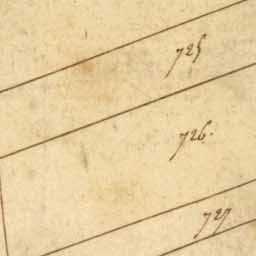 725
726.
727